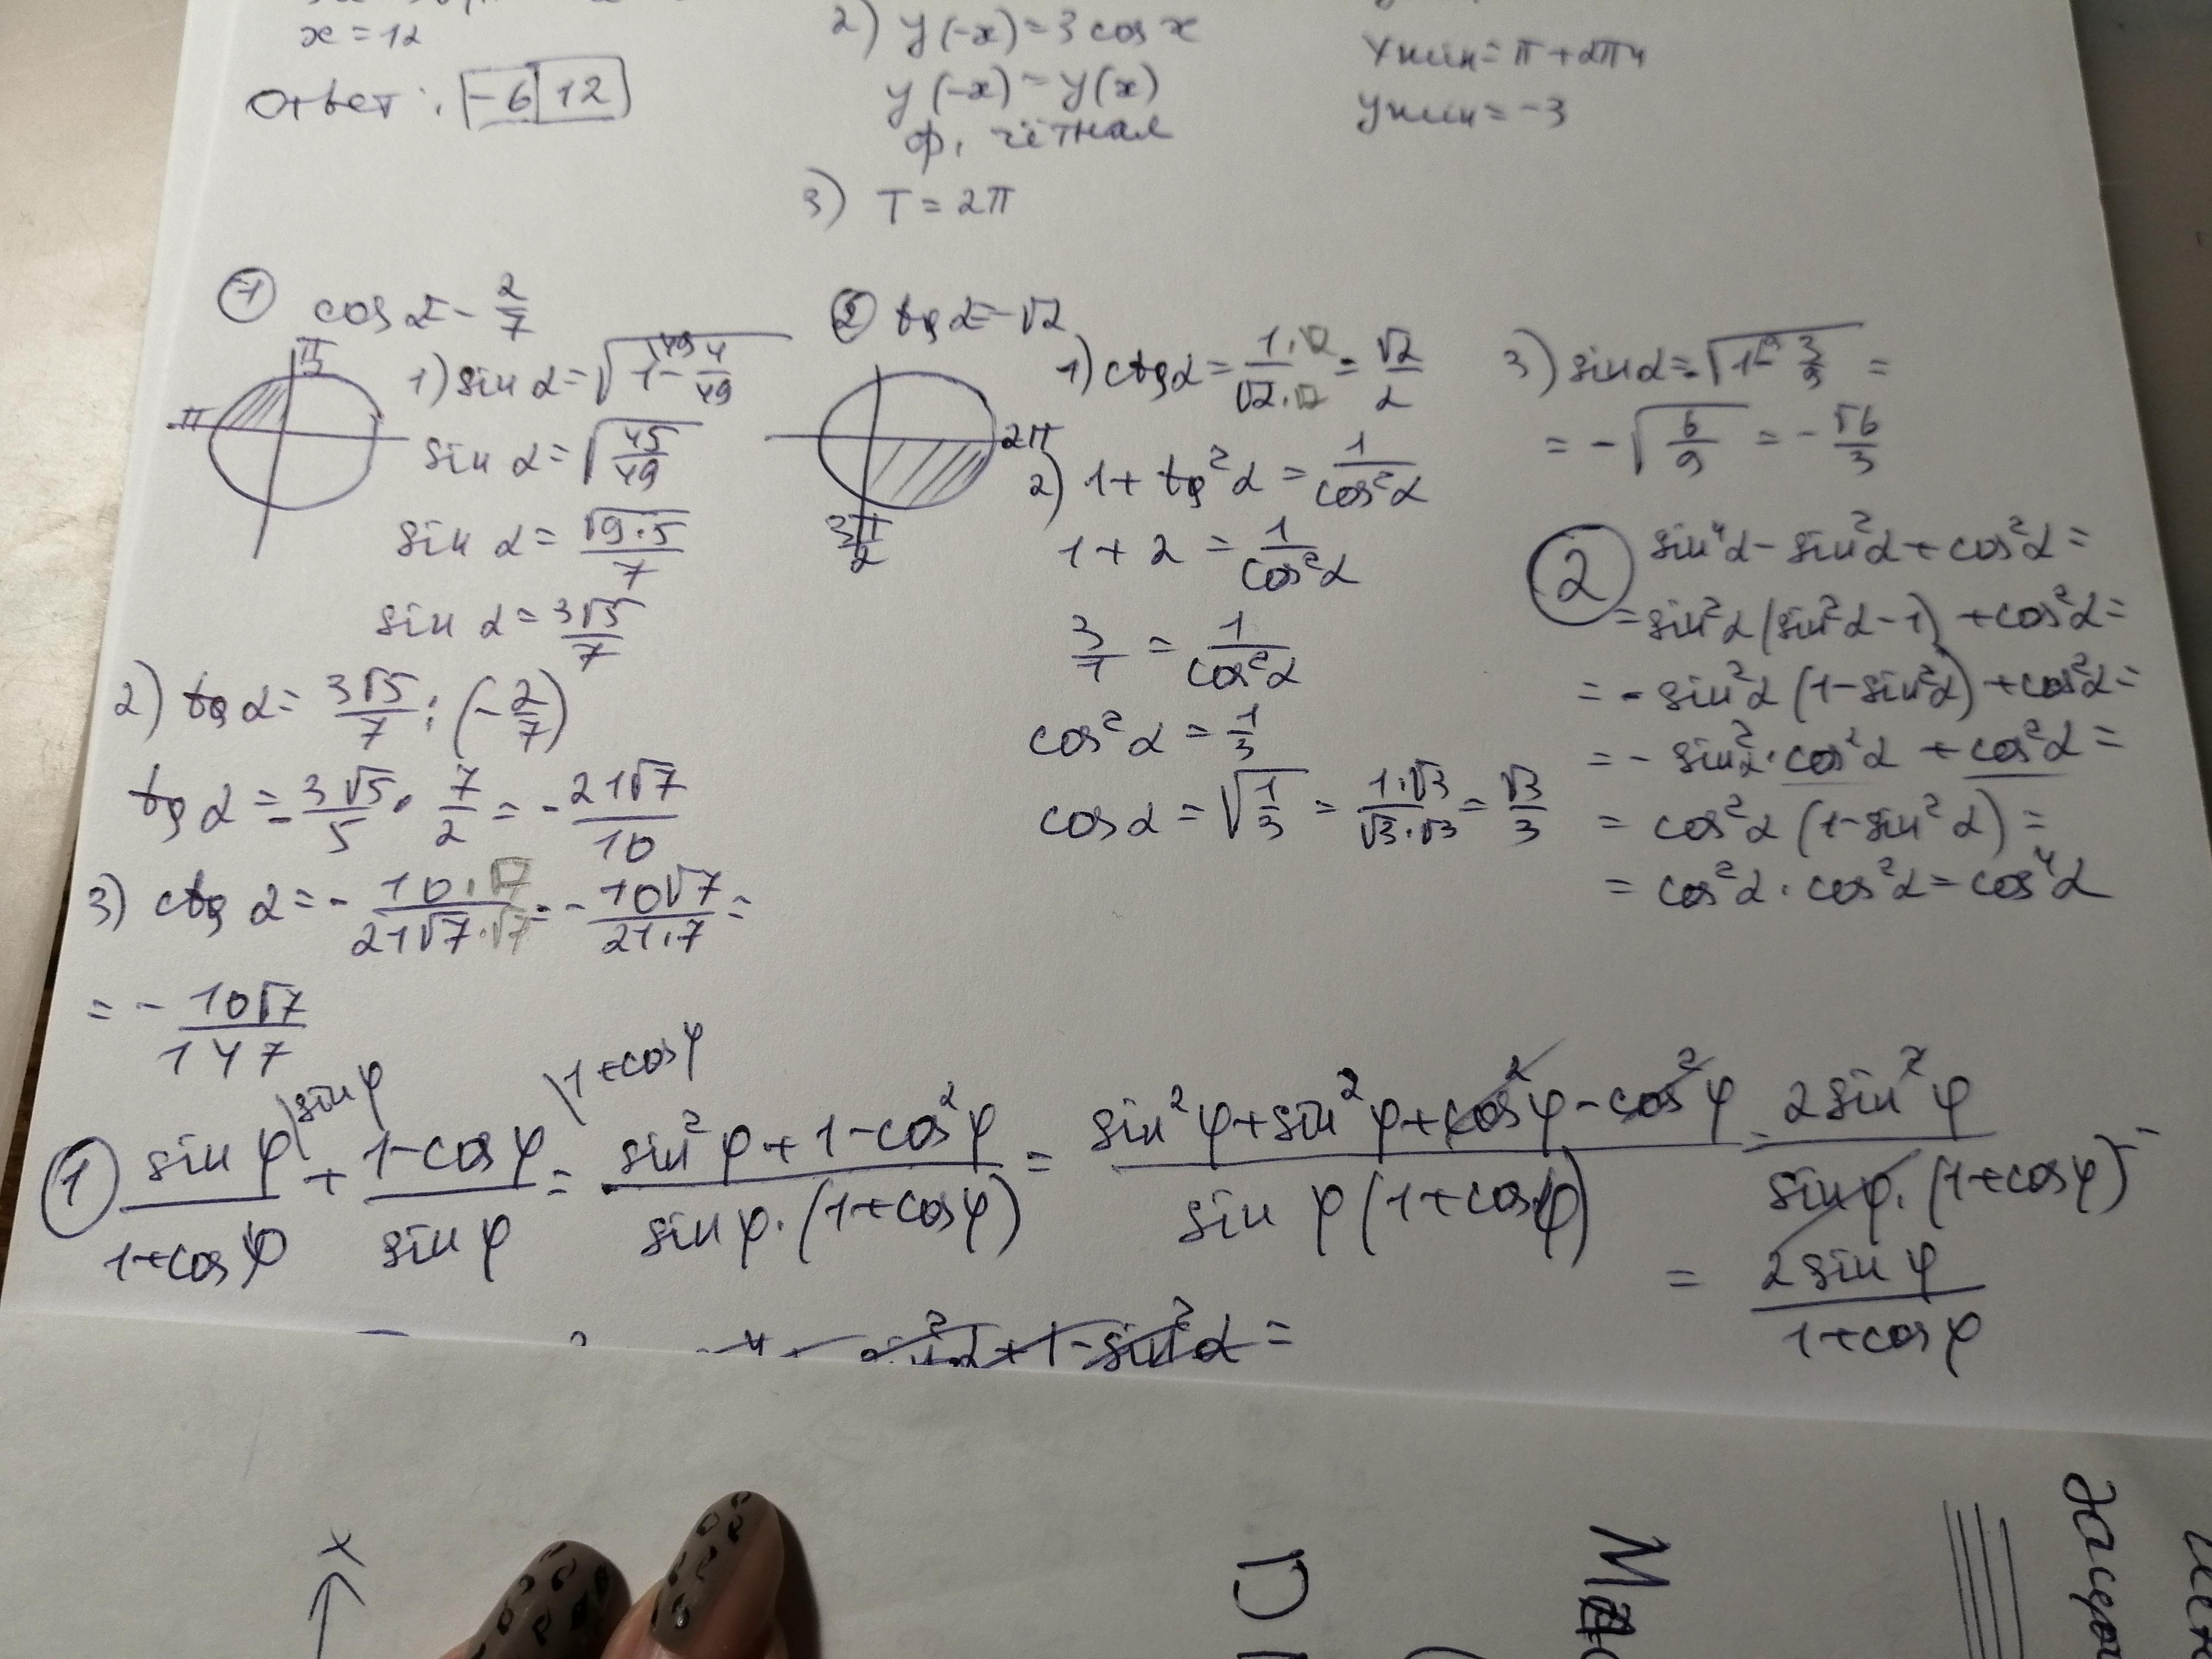 x = 12
Ответ: -6 | 12
2) y(-x) = 3 cos x
y(-x) = y(x)
ф. чётная
3) T = 2π
Xмин = π + 2πn
Yмин = -3
① cos α = - 2/7
π/2
π
1) sin α = √(1 - 4/49)
sin α = √(45/49)
sin α = √(9·5)/7
sin α = 3√5/7
2) tg α = 3√5/7 : (-2/7)
tg α = - 3√5/5 · 7/2 = - 21√7/10
3) ctg α = - (10·√7)/(21√7·√7) = - 10√7/(21·7) =
= - 10√7/147
② tg α = -√2
2π
3π/2
1) ctg α = (1·√2)/(√2·√2) = √2/2
2) 1 + tg²α = 1/cos²α
1 + 2 = 1/cos²α
3/1 = 1/cos²α
cos²α = 1/3
cos α = √(1/3) = (1·√3)/(√3·√3) = √3/3
3) sin α = -√(1 - 3/9) =
= - √(6/9) = - √6/3
② sin⁴α - sin²α + cos²α =
= sin²α (sin²α - 1) + cos²α =
= - sin²α (1 - sin²α) + cos²α =
= - sin²α · cos²α + cos²α =
= cos²α (1 - sin²α) =
= cos²α · cos²α = cos⁴α
\sin φ \1+cos φ
① sin φ/(1+cos φ) + (1-cos φ)/sin φ = (sin²φ + 1 - cos²φ)/(sin φ · (1+cos φ)) = (sin²φ + sin²φ + cos²φ - cos²φ)/(sin φ (1+cos φ)) = 2sin²φ/(sin φ · (1+cos φ)) =
= 2 sin φ/(1+cos φ)
+ 1 - sin²α =
x